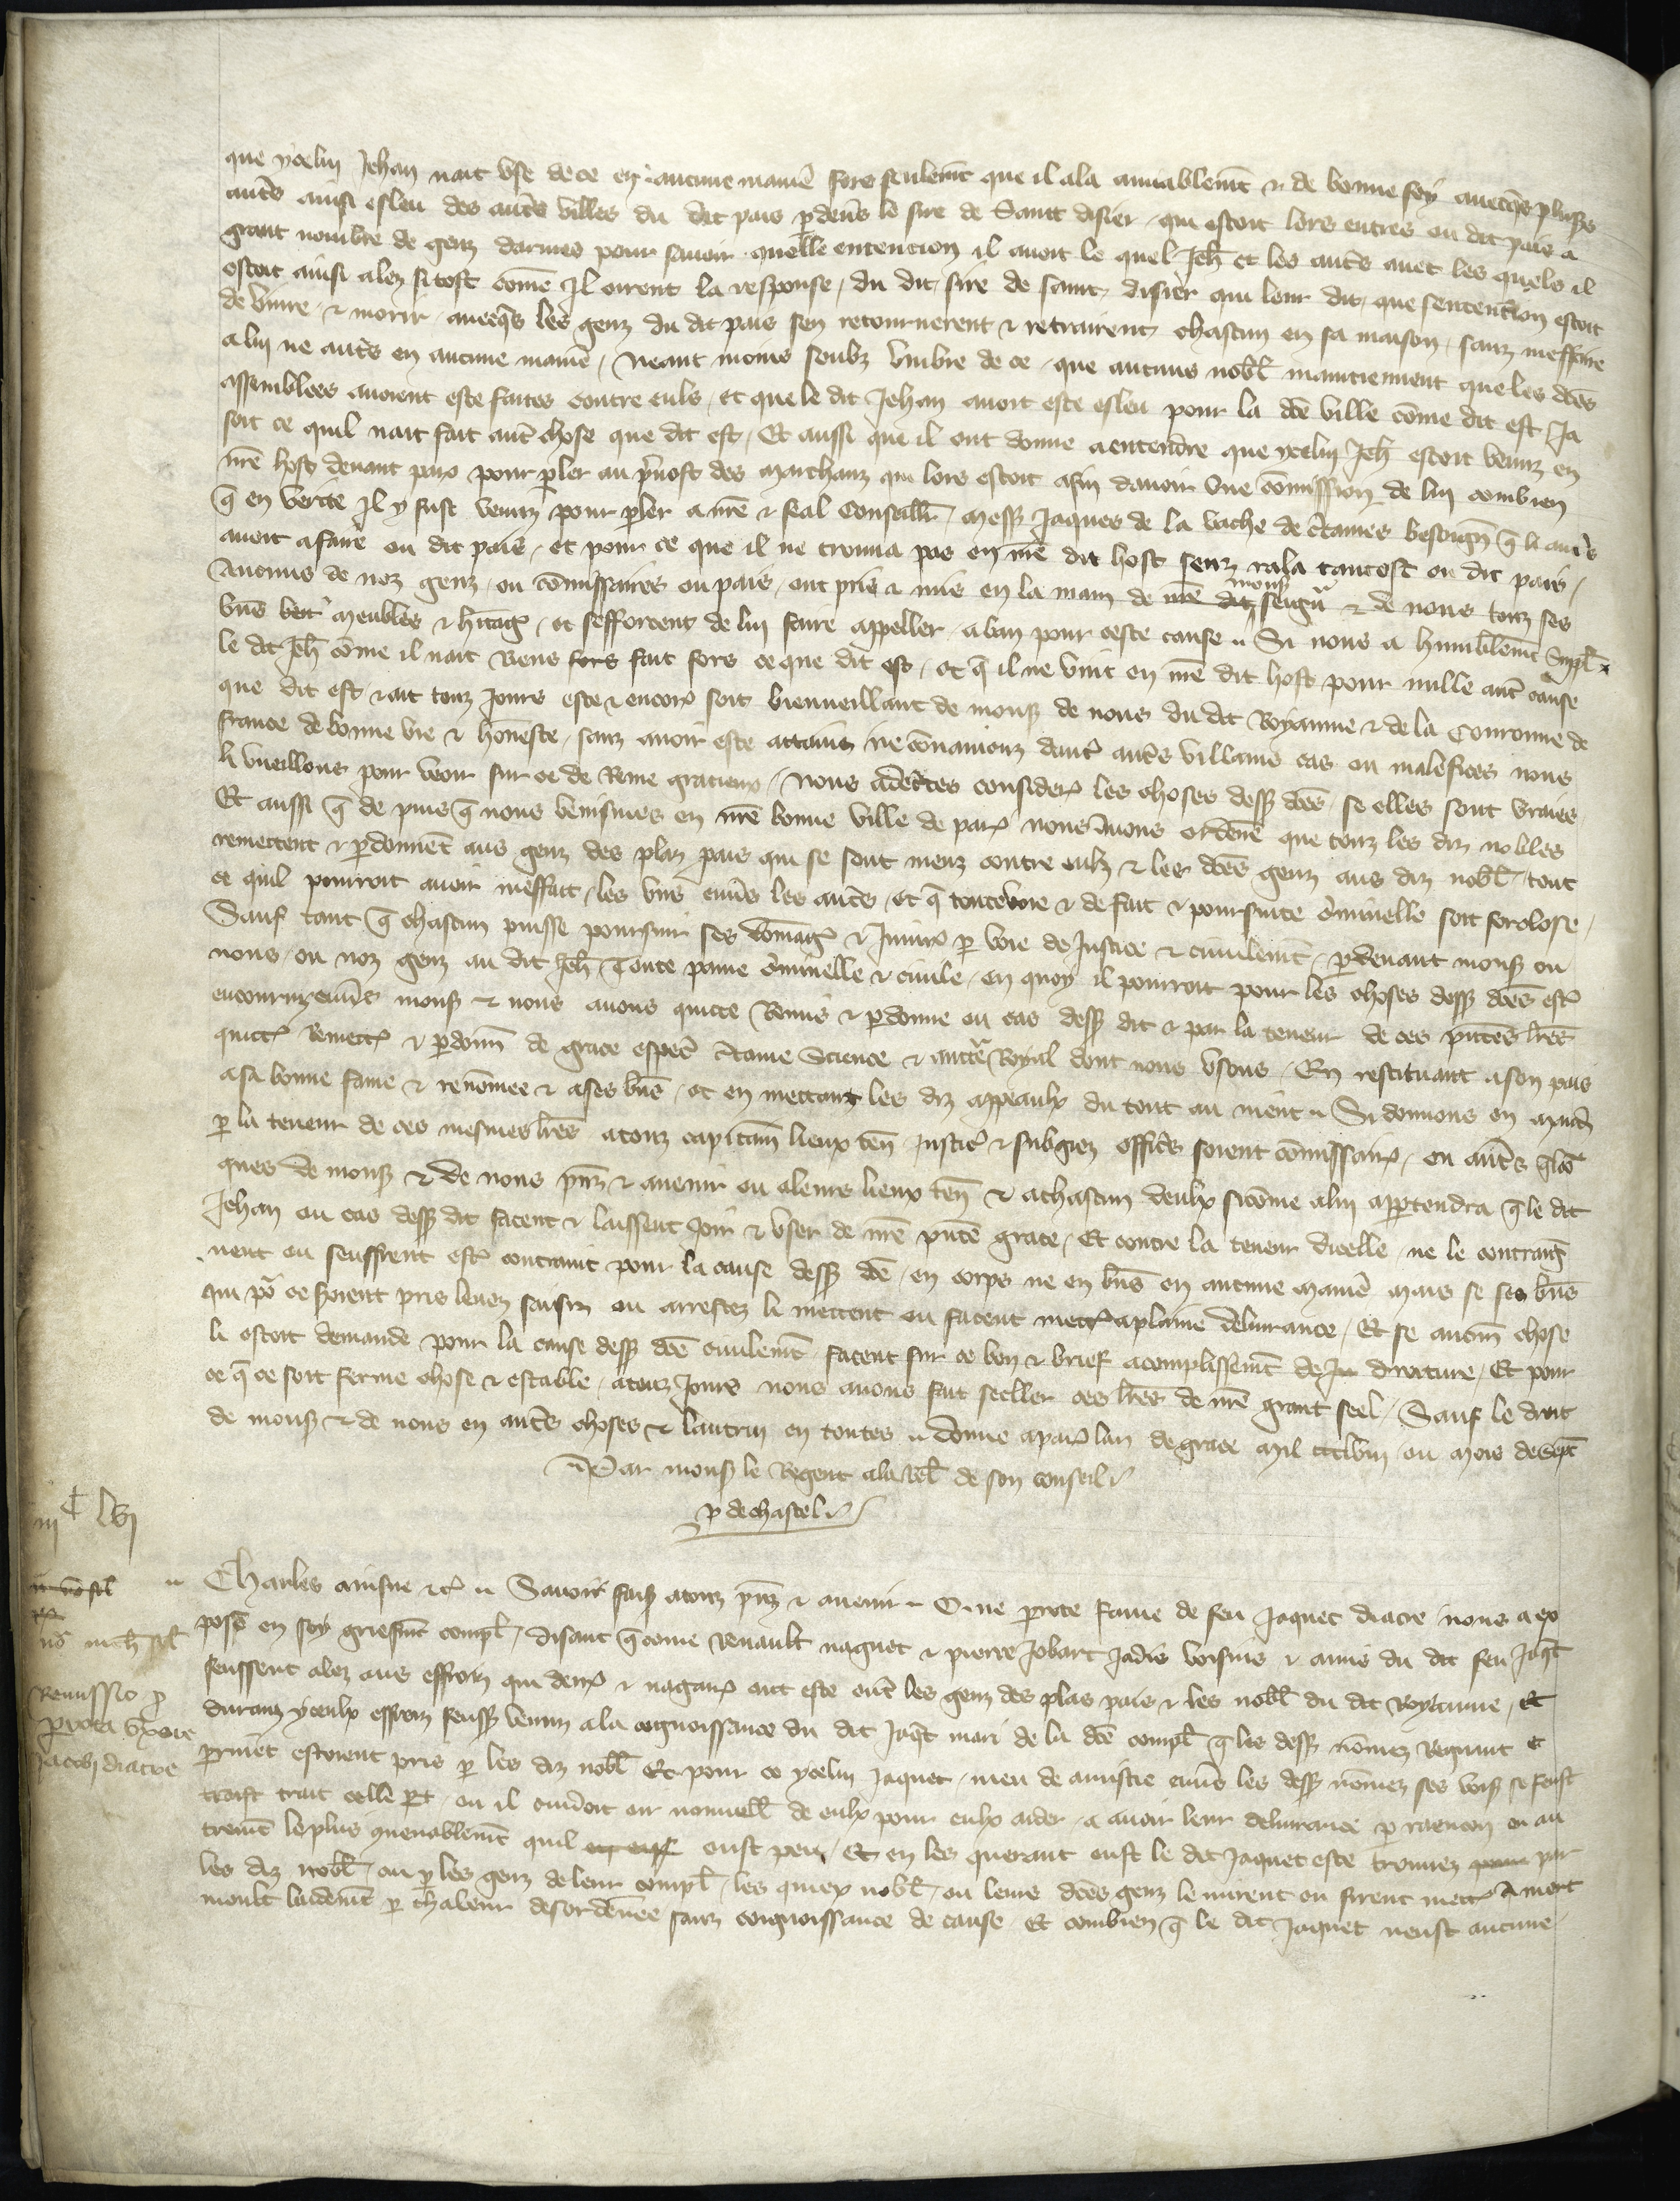 que ycelui Jehan nait use de ce en aucune maniē fors seulemt que il ala amiablemt & de bonne foy avecqs plusrs
autēs ainsi esleu des autēs villes du dit pais pdevs le sire de Saint disier qui estoit lors entres ou dit pais a
grant nombre de genz darmes pour savoir quelle entencion il avoit le quel Jeh et les autēs avec les quels il
estoit ainsi alez si tost come il oirent la response du dit sire de saint disier qui leur dit que sentencion estoit
de vivre & morir avecqs les genz du dit pais sen retournerent & retrairent chascun en sa maison sanz meffaire
a lui ne autēs en aucune maniē / Neant moins soubz umbre de ce que aucuns nobl maintiennent que les dces
assemblees avoient este faites contre euls et que le dit Jehan avoit este esleu pour la dce ville come dit est Ja
soit ce quil nait fait aut chose que dit est / Et aussi que il ont donne a entendre que ycelui Jeh estoit venuz en
nre host devant paris pour pler au pvost des marchanz qui lors estoit afin davoir une comission de lui combien
q en verite Il y fust venuz pour pler a nre & feal Conseillr mess Jaques de la vache de ctaines besoign q li avs
avoit a faire ou dit pais et pour ce que il ne trouva pas en nre dit host senz rala tantost ou dit pais /
Aucuns de noz genz ou comissaires ou pais ont pris & mis en la main de nre dit mons seigur & de nous touz ses
bns meubles & hitag et sefforcent de lui faire appeller a ban pour ceste cause Si nous a humblemt suppl
le dit Jeh come il nait Riens fors fait fors ce que dit est et q il ne vint en nre dit host pour nulle aut cause
que dit est & ait touz Jours este & encor soit bienveillant de mons de nous du dit Royaume & de la Couronne de
france de bonne vie & honeste sanz avoir este attains ne convaincuz dautr autēs villains cas ou malefices nous
li vueillons pour veoir sur ce de Reme gracieux / Nous adctes consider les choses dess dces se elles sont vraies
Et aussi q de puis q nous venismes en nre bonne ville de par nous Avons ordene que touz les diz nobles
remettent & pdonnet aus genz des plaz pais qui se sont meuz contre eulz & les dces genz aus diz nobl tout
ce quil pourroit avoir meffait les uns envs les autēs et q toute voie & de fait & poursuite criminelle soit forclose /
Sauf tant q chascun puisse poursuir ses domag & Injur p voie de Justice & civilemt pdevant mons ou
nous ou noz genz au dit Jeh Toute paine criminelle & civile en quoy il pourroit pour les choses dess dces estr
encouruz envs mons & nous avons quicte Remis & pdonne ou cas dess dit & par la teneur de ces pntes lres
quict Remett & pdonn de grace espec ctaine Science & auctr Royal dont nous usons En restituant a son pais
a sa bonne fame & renomee & a ses bns et en mettant les diz appeaulx du tout au nient Si donnons en mandt
p la teneur de ces mesmes lres a touz capitain lieux ten Justic & subgiez offics soient comissair ou autēs qlco
ques de mons & de nous pnz & avenir ou a leurs lieux ten & a chascun deulx si come a lui appertendra q le dit
Jehan ou cas dess dit facent & laissent Joir & user de nre pnte grace / Et contre la teneur dicelle ne le contraig
nent ou seuffrent estr contraint pour la cause dess dce en corps ne en bns en aucune maniē mais se ses bns
qui po ce soient pris levez saisiz ou arrestez li mettent ou facent mett a plaine delivrance / Et se aucun chose
li estoit demande pour la cause dess dce civilemt facent sur ce bon & brief acomplissemt de Ju droiture / Et pour
ce q ce soit ferme chose & estable a touz Jours nous avons fait seeller ces lres de nre grant seel / Sauf le droit
de mons & de nous en autēs choses & lautrui en toutes donne a par lan de grace mil ccclviii ou mois de sept
Par mons le Regent a la rel de son conseil
P de chastel

iiiC lvi
Charles ainsne etc Savoir fais a touz pnz & avenir Que perrote fame de feu Jaquet diacre nous a ex
pose en soy griefmt compl / disant q come Renault naguet & pierre Jobart Jadis voisins & amis du dit feu Jaqt
feussent alez aus effroiz qui derr & nagair ont este entre les genz des plas pais & les nobl du dit Royaume / Et
durans yceulx effroiz feuss venuz a la cognoissance du dit Jaqt mari de la dce compl q les dess nomez Regnaut et
perrinet estoient pris p les diz nobl Et pour ce ycelui Jaquet meu de amistie envs les dess nomez ses vois se feust
traist trait celle pt ou il cuidoit oir nouvell de eulx pour eulx aider a avoir leur delivrance p raencon ou au
tremt le plus quenablemt quil eust peu / Et en les querant eust le dit Jaquet este trouvez par
les diz nobl ou p les genz de leur compl les quiex nobl ou leurs dces genz le mirent ou firent mett A mort
moult laidemt p chaleur desordenee sanz coignoissance de cause Et combien q le dit Jaquet neust aucune

Remissio p
perrota uxore
Jacobi diacre